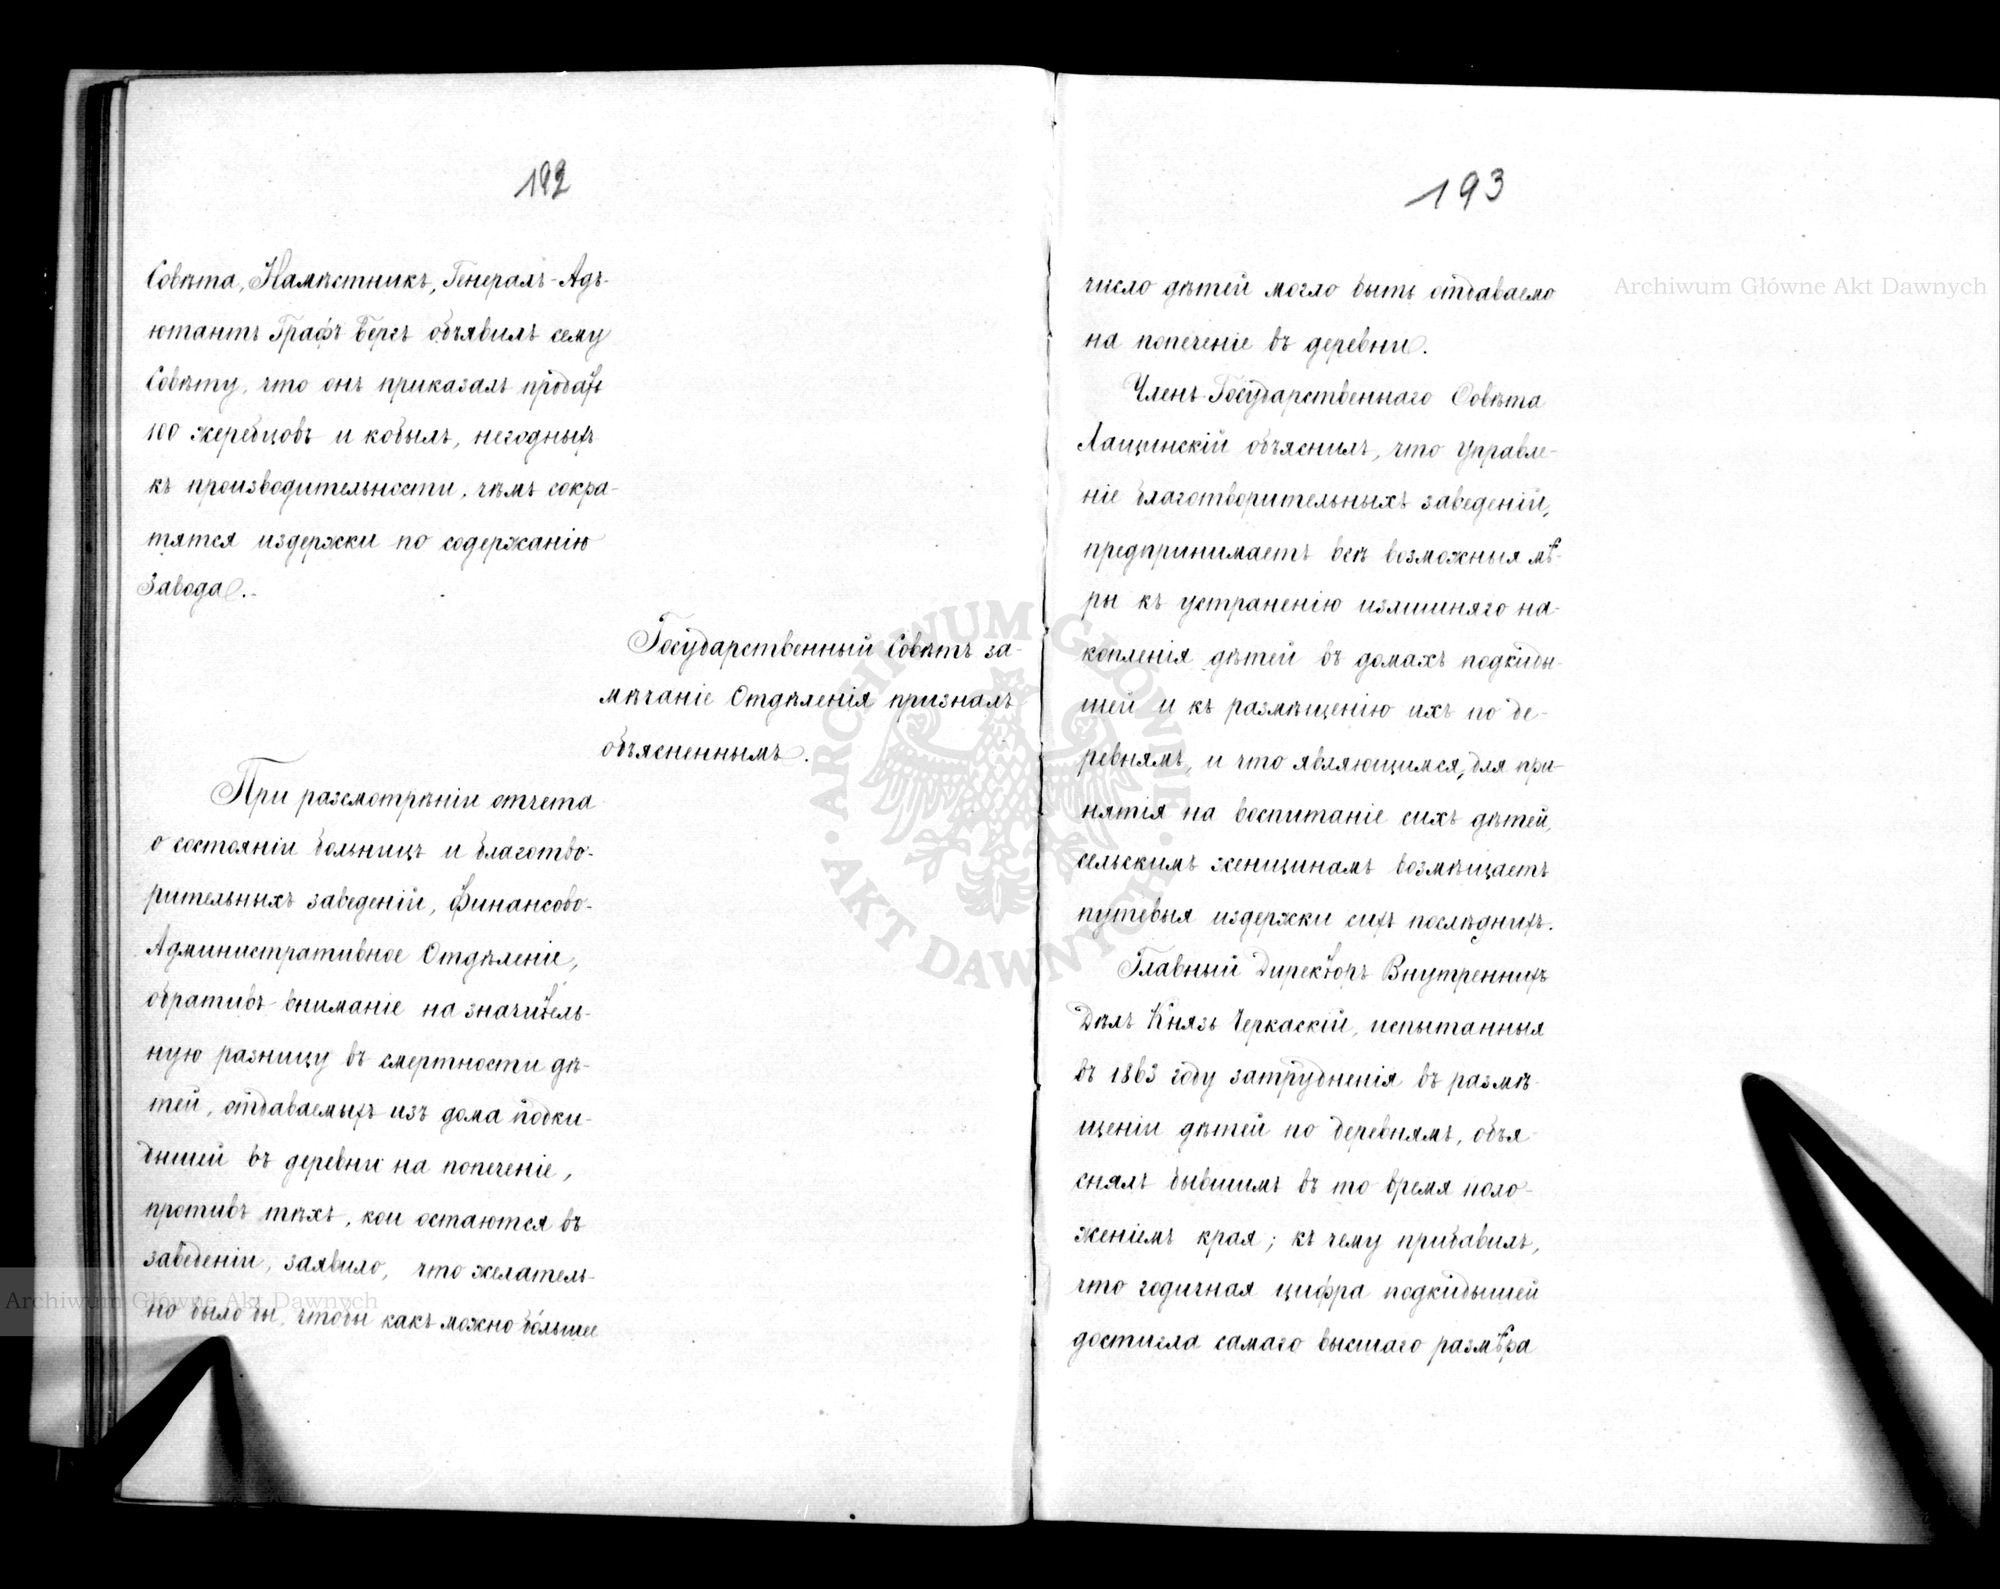 192
Совѣта, Намѣстникъ, Генералъ-Адъ-
ютантъ Графъ Бергъ объявилъ сему
Совѣту, что онъ приказалъ продать
100 жеребцовъ и кобылъ, негодныхъ
къ производительности, чѣмъ сокра-
тятся издержки по содержанію
Завода.
Государственный Совѣтъ за-
мѣчаніе Отдѣленія призналъ
объясненнымъ.
При разсмотрѣніи отчета
о состояніи больницъ и благотво-
рительныхъ заведеній, Финансово-
Административное Отдѣленіе,
обративъ вниманіе на значитель-
ную разницу въ смертности дѣ-
тей, отдаваемыхъ изъ дома подки-
дышей въ деревни на попеченіе,
противъ тѣхъ, кои остаются въ
заведеніи, заявило, что желатель-
но было бы, чтобы какъ можно бóльшее
193
число дѣтей могло быть отдаваемо
на попеченіе въ деревни.
Членъ Государственнаго Совѣта
Лащинскій объяснилъ, что Управле-
ніе благотворительныхъ заведеній,
предпринимаетъ всѣ возможныя мѣ-
ры къ устраненію излишняго на-
копленія дѣтей въ домахъ подкиды-
шей и къ размѣщенію ихъ по де-
ревнямъ, и что являющимся, для при-
нятія на воспитаніе сихъ дѣтей,
сельскимъ женщинамъ возмѣщаетъ
путевыя издержки сихъ послѣднихъ.
Главный Директоръ Внутреннихъ
Дѣлъ Князь Черкаскій, испытанныя
въ 1863 году затрудненія въ размѣ-
щеніи дѣтей по деревнямъ, объя-
снялъ бывшимъ въ то время поло-
женіемъ края; къ чему прибавилъ,
что годичная цифра подкидышей
достигла самаго высшаго размѣра
Archiwum Główne Akt Dawnych
Archiwum Główne Akt Dawnych
ARCHIWUM GŁÓWNE AKT DAWNYCH